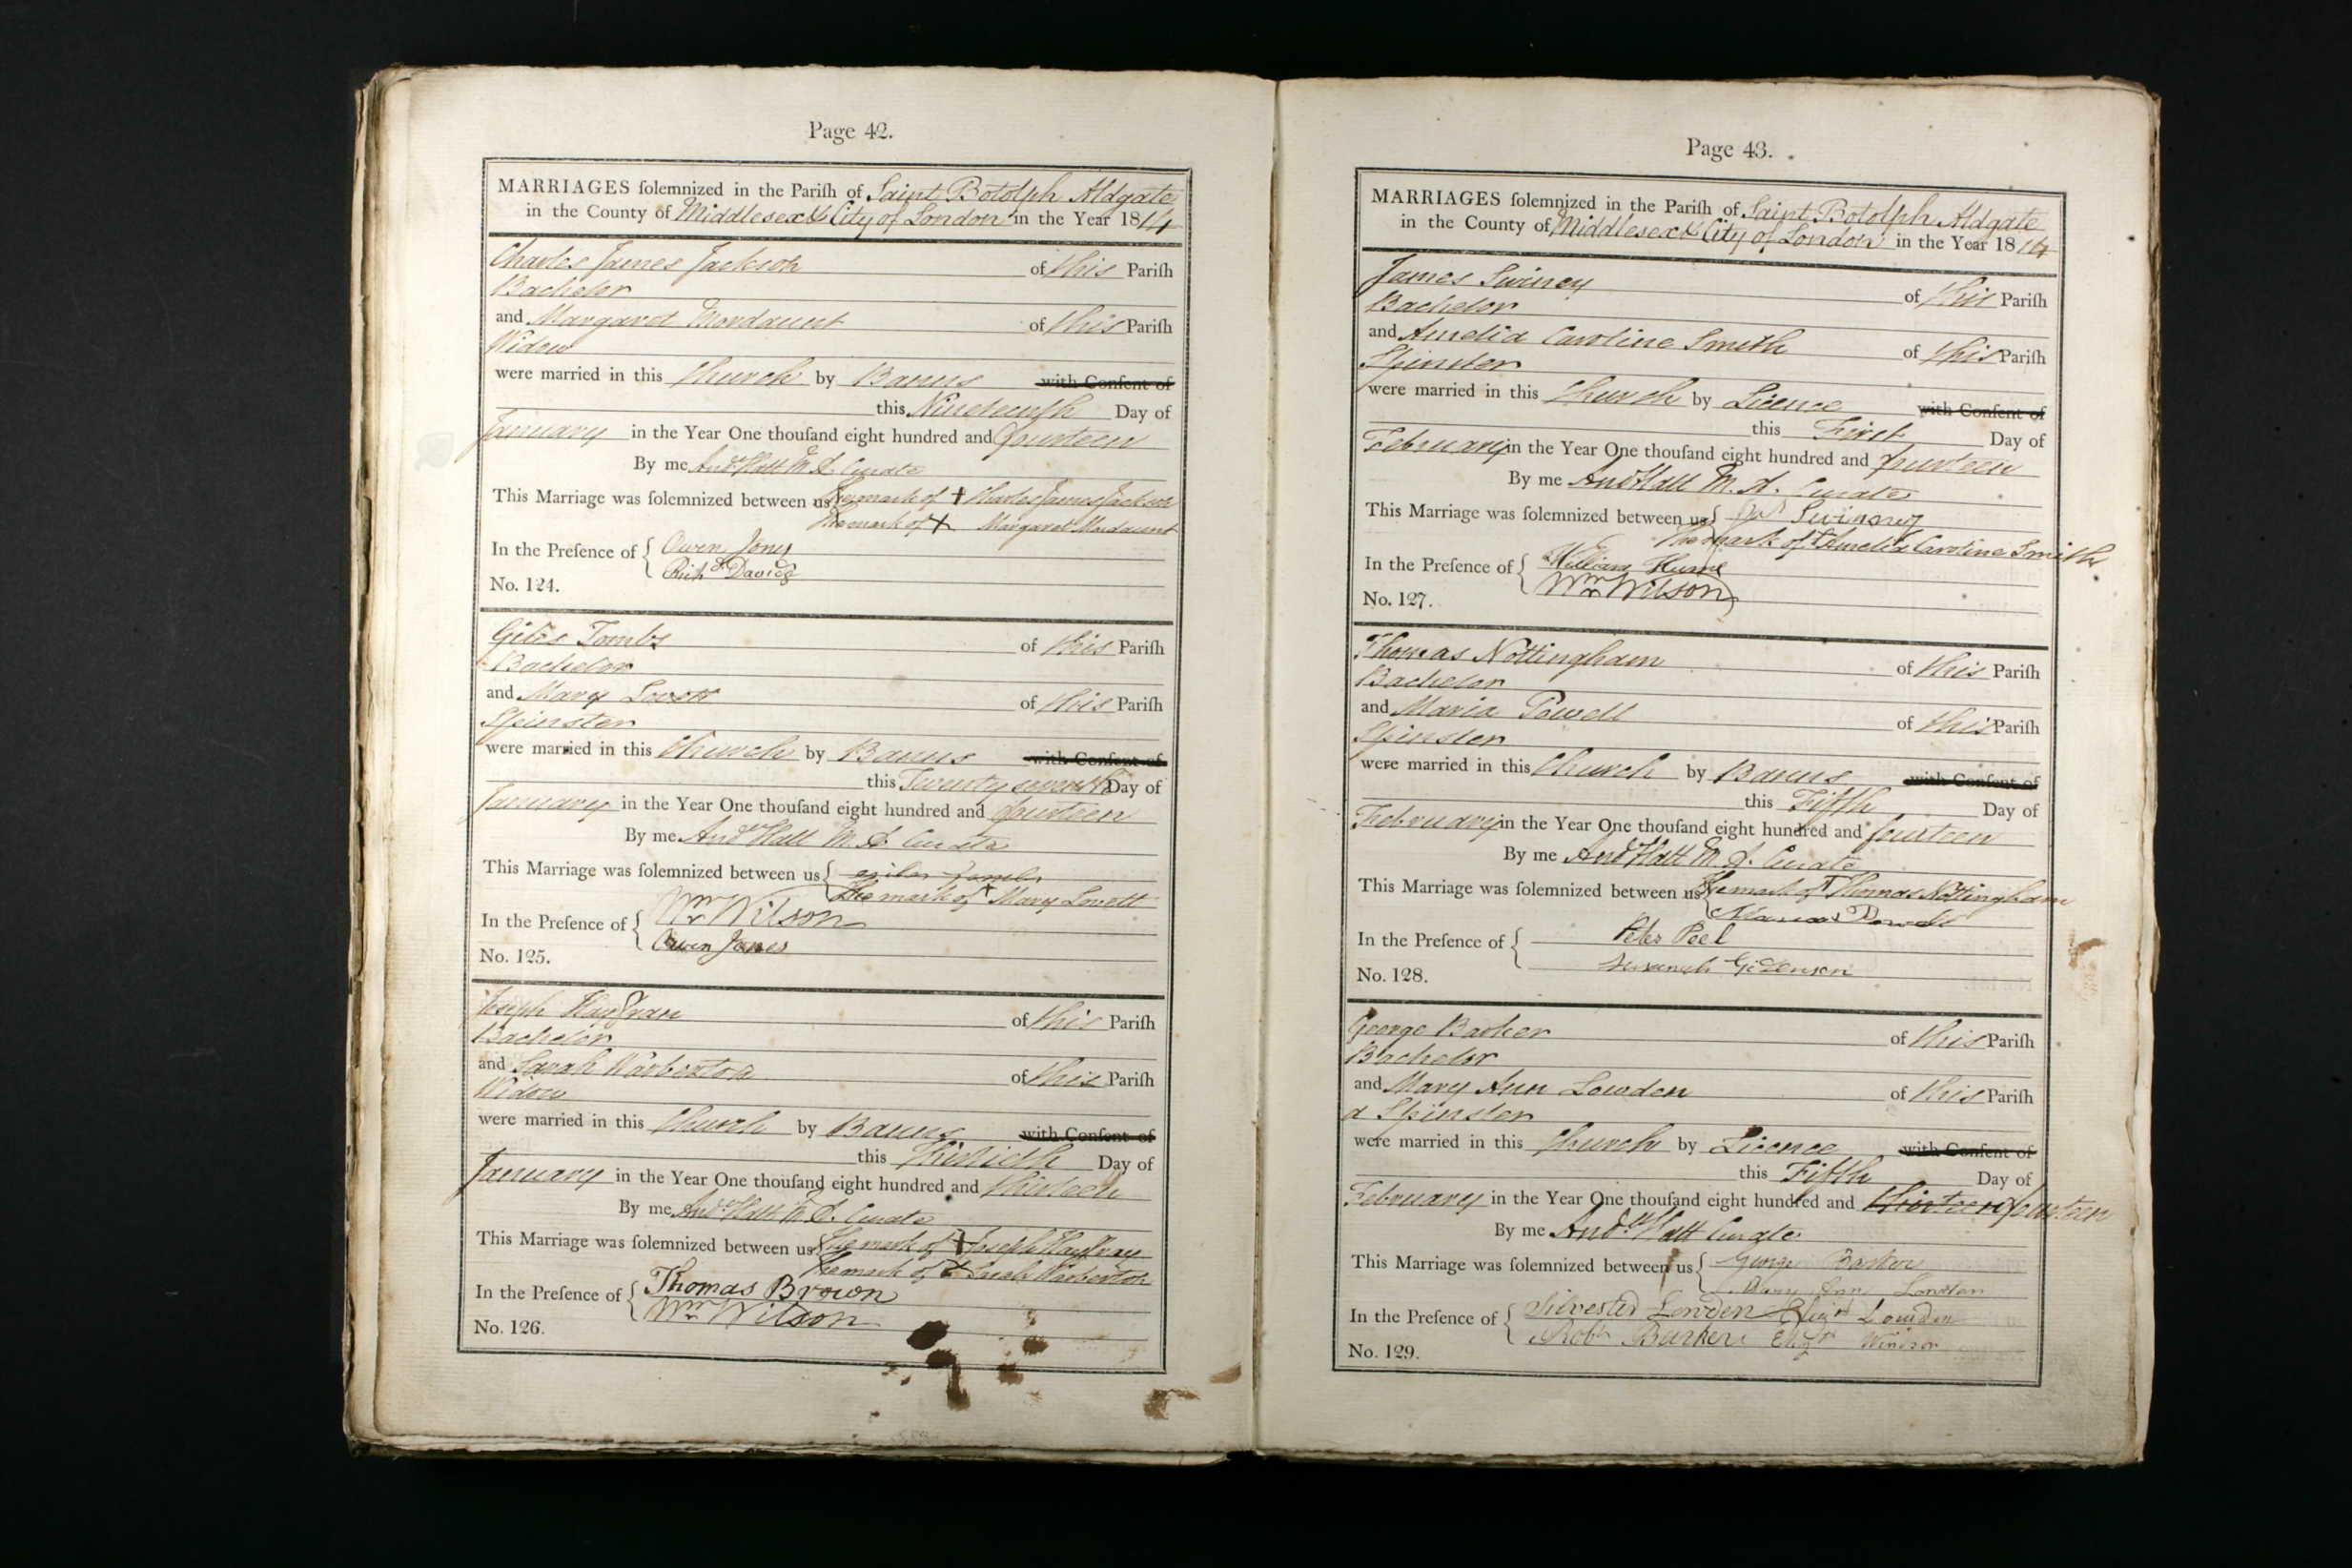 Page 42.
MARRIAGES ſolemnized in the Pariſh of Saint Botolph Aldgate
in the County of Middlesex & City of London in the Year 1814
Charles James Jackson of this Pariſh
Bachelor
and Margaret Mordaunt of this Pariſh
Widow
were married in this Church by Banns with Conſent of
this Nineteenth Day of
January in the Year One thouſand eight hundred and fourteen
By me And.w Hatt M A Curate
This Marriage was ſolemnized between us The mark of + Charles James Jackson
The mark of + Margaret Mordaunt
In the Preſence of Owen Jones
Rich.d Davids
No. 124.
Giles Tombs of this Pariſh
Bachelor
and Mary Lovett of this Pariſh
Spinster
were married in this Church by Banns with Conſent of
this Twenty seventh Day of
January in the Year One thouſand eight hundred and fourteen
By me And.w Hatt M A Curate
This Marriage was ſolemnized between us giles tombs
The mark of + Mary Lovett
In the Preſence of Wm Wilson
Owen Jones
No. 125.
Joseph of this Pariſh
Bachelor
and Sarah Warberton of this Pariſh
Widow
were married in this Church by Banns with Conſent of
this Thirtieth Day of
January in the Year One thouſand eight hundred and thirteen
By me And.w Hatt M A. Curate
This Marriage was ſolemnized between us The mark of + Joseph
The mark of + Sarah Warberton
In the Preſence of Thomas Brown
Wm Wilson
No. 126.
Page 43.
MARRIAGES ſolemnized in the Pariſh of Saint Botolph Aldgate
in the County of Middlesex & City of London in the Year 1814
James Swiney of this Pariſh
Bachelor
and Amelia Caroline Smith of this Pariſh
Spinster
were married in this Church by Licence with Conſent of
this First Day of
February in the Year One thouſand eight hundred and fourteen
By me And.w Hatt M. A. Curate
This Marriage was ſolemnized between us Swiney
The mark of + Amelia Caroline Smith
In the Preſence of William Hume
Wm Wilson
No. 127.
Thomas Nottingham of this Pariſh
Bachelor
and Maria Powell of this Pariſh
Spinster
were married in this Church by Banns with Conſent of
this Fifth Day of
February in the Year One thouſand eight hundred and fourteen
By me And.w Hatt M. A. Curate
This Marriage was ſolemnized between us The mark of + Thomas Nottingham
Maria Powell
In the Preſence of Peter Peel
Susannah
No. 128.
George Barker of this Pariſh
Bachelor
and Mary Ann Lowden of this Pariſh
a Spinster
were married in this Church by Licence with Conſent of
this Fifth Day of
February in the Year One thouſand eight hundred and thirteen fourteen
By me And.w Hatt Curate
This Marriage was ſolemnized between us George Barker
Mary Ann Lowden
In the Preſence of Silvester Lowden Eliz.th Lowden
Rob.t Barker Eliz.th Windsor
No. 129.